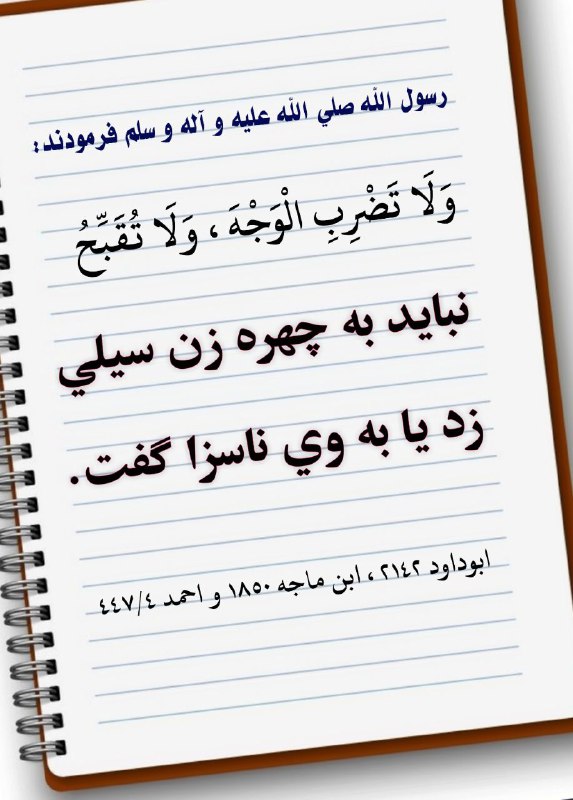 رسول الله صلي الله عليه و آله و سلم فرمودند:
وَلَا تَضْرِبِ الْوَجْهَ، وَلَا تُقَبِّحُ
نبايد به چهره زن سيلي
زد يا به وي ناسزا گفت.
ابوداود ٢١٤٢، ابن ماجه ١٨٥٠ و احمد ٤/٤٤٧